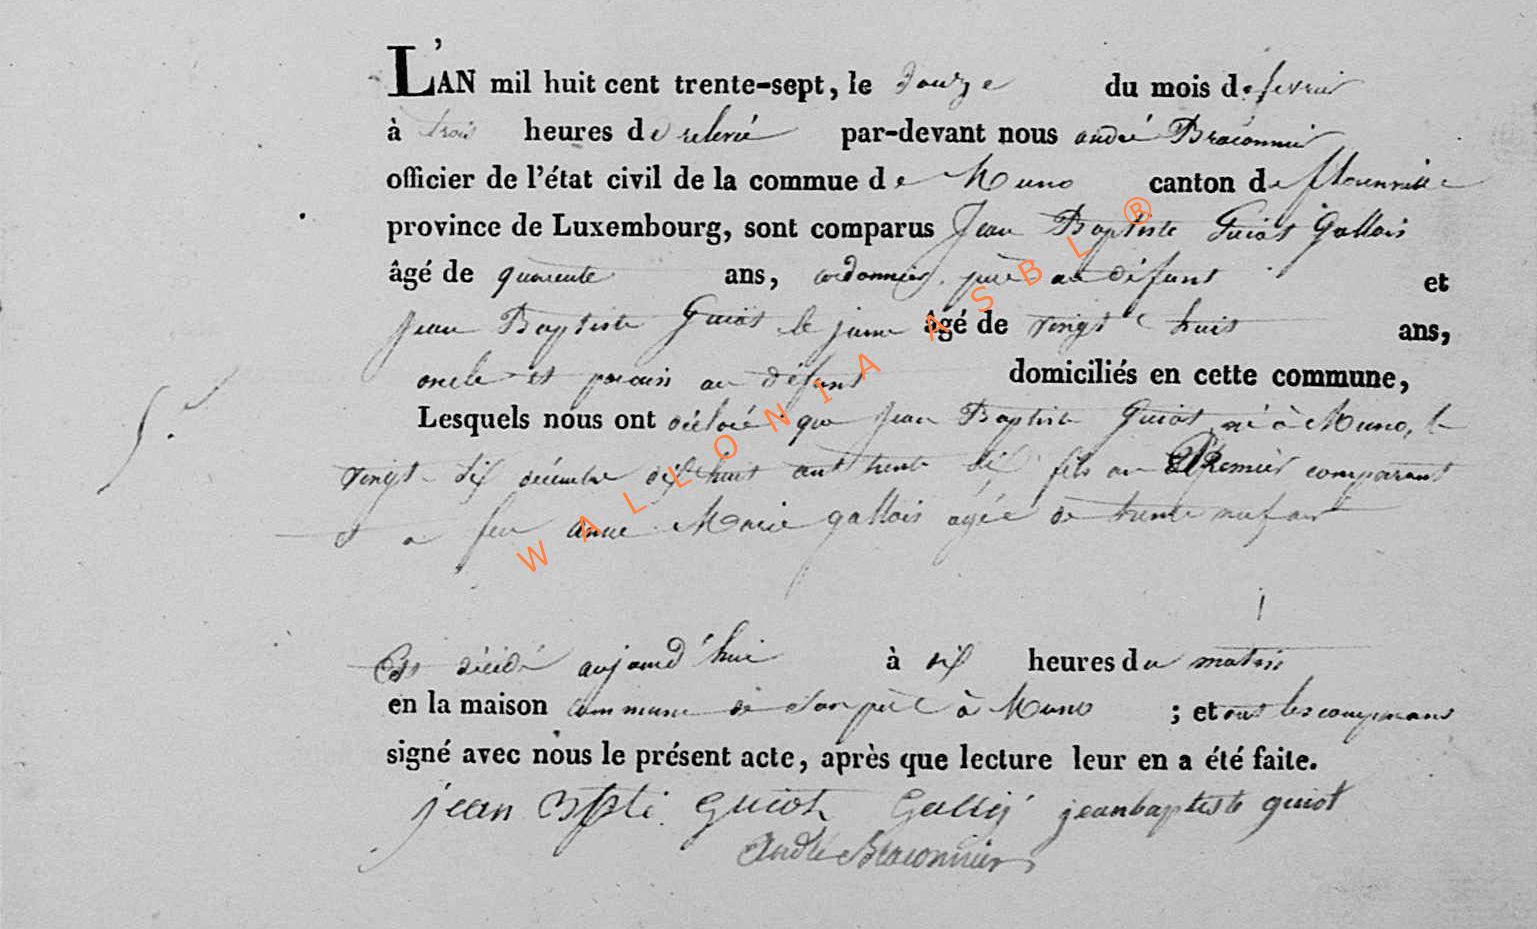 L'AN mil huit cent trente-sept, le douze du mois de fevrier
à trois heures de relevé par-devant nous andré Braconnier
officier de l'état civil de la commue de Muno canton de florenville
province de Luxembourg, sont comparus Jean Baptiste Guiot Gallois
âgé de quarente ans, cordonnier, père au défunt et
jean Baptiste Guiot le jeune âgé de vingt huit ans,
oncle et parain au défunt domiciliés en cette commune,
Lesquels nous ont déclaré que jean Baptiste Guiot né à Muno, le
vingt dix décembre dix huit cent trente six fils au Premier comparant
et a feu anne Marie gallois agée de trente neuf ans
Est décédé aujourd'hui à six heures du matin
en la maison commune de son père à Muno ; et ont les comparans
signé avec nous le présent acte, après que lecture leur en a été faite.
jean Bpti Guiot jeanbaptiste guiot
André Braconnier
WALLONIA ASBL ®